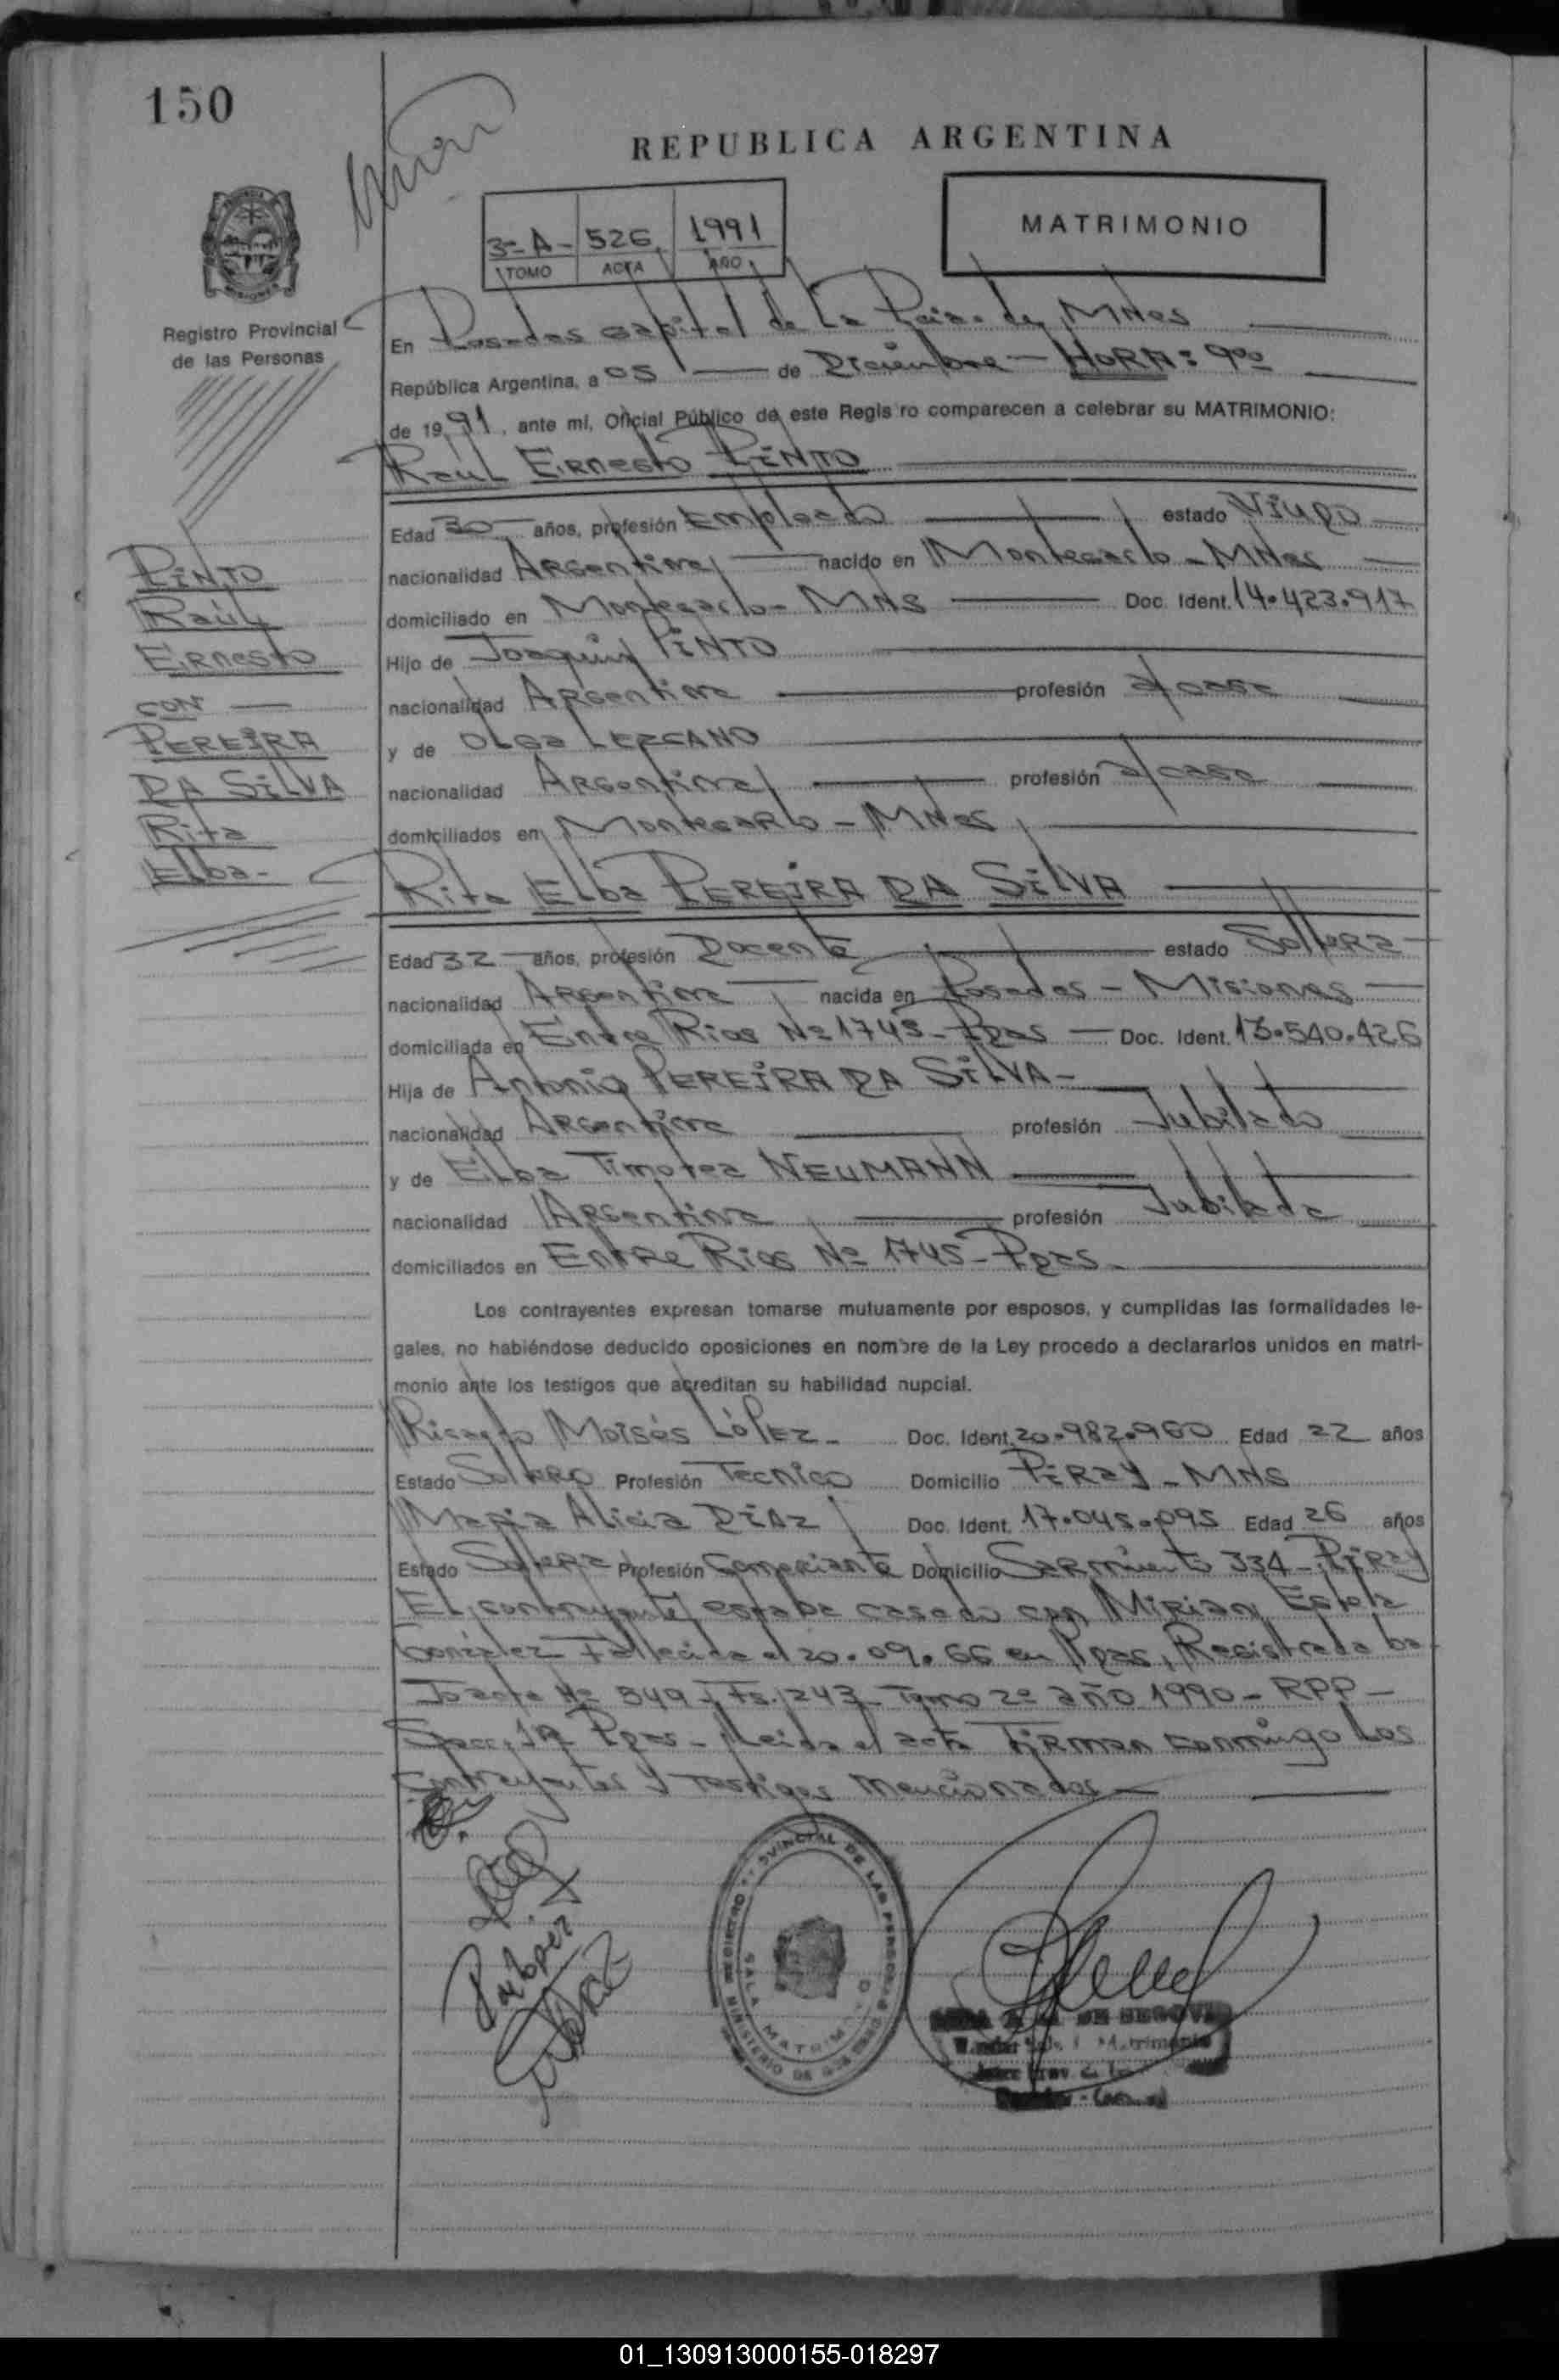 150
REPUBLICA ARGENTINA
3º A - 526 1991
TOMO ACTA AÑO
MATRIMONIO
Registro Provincial
de las Personas
En Posadas capital de La de MNes
República Argentina, a 05 de Diciembre - HORA: 9ºº
de 1991, ante mí, Oficial Público de este Regis ro comparecen a celebrar su MATRIMONIO:
Raúl Ernesto PINTO
Edad 30 años, profesión Empleado estado Viudo
nacionalidad Argentina nacido en Montecarlo - MNes
domiciliado en Montecarlo - MNS Doc. Ident. 14.423.917
Hijo de Joaquin PINTO
nacionalidad Argentina profesión casa
y de OLGa LEZCANO
nacionalidad Argentina profesión casa
domiciliados en Montecarlo - MNes
PINTO
Raúl
Ernesto
CON
PEREIRA
DA SILVA
Rita
Elba-
Rita Elba PEREIRA DA SILVA
Edad 32 años, profesión Docente estado Soltera
nacionalidad Argentina nacida en Posadas - Misiones
domiciliada en Entre Rios Nº 1745 - Pdas Doc. Ident. 13.540.426
Hija de Antonio PEREIRA DA SILVA-
nacionalidad Argentina profesión Jubilado
y de Elba Timotea NEUMANN
nacionalidad Argentina profesión Jubilada
domiciliados en Entre Rios Nº 1745 - Pdas.
Los contrayentes expresan tomarse mutuamente por esposos, y cumplidas las formalidades le-
gales, no habiéndose deducido oposiciones en nombre de la Ley procedo a declararlos unidos en matri-
monio ante los testigos que acreditan su habilidad nupcial.
Moisés López - Doc. Ident. 20.982.960 Edad 22 años
Estado Soltero Profesión Tecnico Domicilio PiRay - MNS
Maria Alicia DIAZ Doc. Ident. 17.045.095 Edad 26 años
Estado Soltera Profesión Comerciante Domicilio Sarmiento 334 - PiRay
El contrayente estaba casado con Mirian Estela
González Fallecida el 20.09.66 en Pdas, Registrada ba-
Jo acta Nº 549 - Fs. 243 - Tomo 2º año 1990 - RPP -
Secc. 1ª Pdas - Leida el acta Firman conmigo los
contrayentes y testigos mencionados -
PROVINCIAL DE LAS PERSONAS
SALA MATRIMONIO
MINISTERIO DE GOBIERNO
DE SEGOVIA
01_130913000155-018297